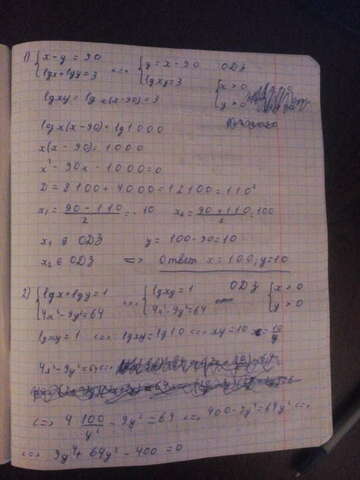 1) { x-y = 90 <=> { y = x-90 ОДЗ
lgx+lgy = 3 lgxy = 3 { x > 0
y > 0
lgxy = lg x(x-90) = 3
log x(x-90) = lg 1000
x(x-90) = 1000
x² - 90x - 1000 = 0
D = 8100 + 4000 = 12100 = 110²
x₁ = (90-110)/2 = -10 x₂ = (90+110)/2 = 100
x₁ ∉ ОДЗ y = 100-90 = 10
x₂ ∈ ОДЗ => Ответ x = 100, y = 10
2) { lgx + lgy = 1 <=> { lgxy = 1 ОДЗ { x > 0
4x² - 9y² = 64 4x² - 9y² = 64 y > 0
lgxy = 1 <=> lgxy = lg10 <=> xy = 10 x = 10/y
4x² - 9y² = 64 <=>
<=> 4 100/y² - 9y² = 64 <=> 400 - 9y⁴ = 64y² <=>
<=> 9y⁴ + 64y² - 400 = 0